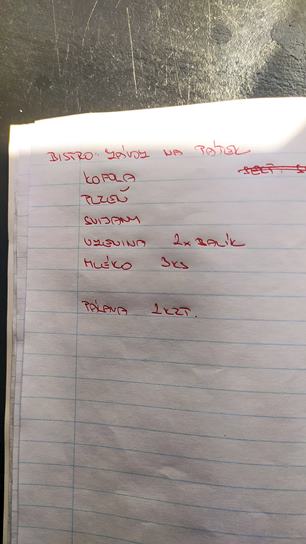 BISTRO - ZÁVOZ NA PÁTEK
KOFOLA
PLZEŇ
SVIJANY
UZENINA 2x BALÍK
MLÉKO 3KS
PÁLAVA 1 KRT.